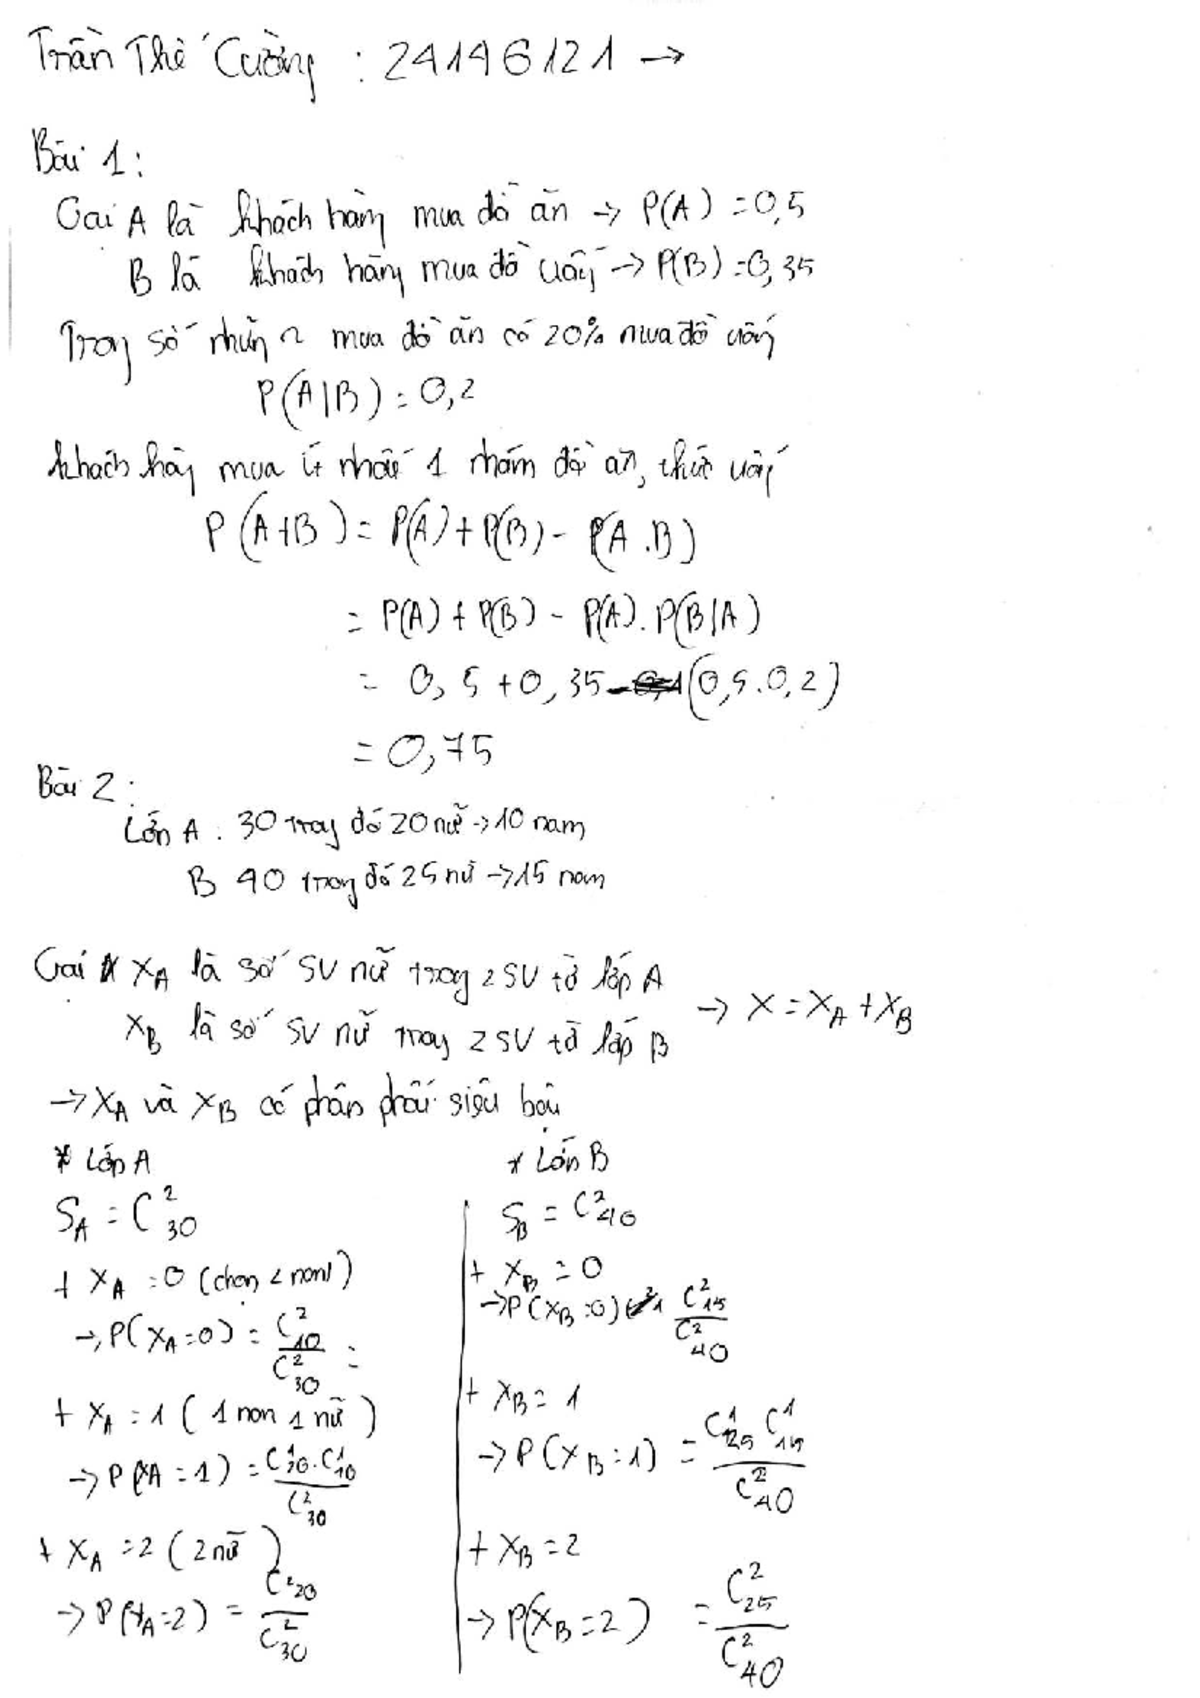 Trần Thế Cường : 24146121 →
Bài 1:
Gọi A là khách hàng mua đồ ăn → P(A) = 0,5
B là khách hàng mua đồ uống → P(B) = 0,35
Trong số những ~ mua đồ ăn có 20% mua đồ uống
P(A|B) = 0,2
khách hàng mua ít nhất 1 nhóm đồ ăn, thức uống
P(A+B) = P(A) + P(B) - P(A.B)
= P(A) + P(B) - P(A). P(B|A)
= 0,5 + 0,35 - (0,5.0,2)
= 0,75
Bài 2:
Lớp A : 30 trong đó 20 nữ → 10 nam
B 40 trong đó 25 nữ → 15 nam
Gọi X_A là số SV nữ trong 2 SV từ lớp A
X_B là số SV nữ trong 2 SV từ lớp B → X = X_A + X_B
→ X_A và X_B có phân phối siêu bội
* Lớp A
S_A = C²₃₀
+ X_A = 0 (chọn 2 nam)
→ P(X_A = 0) = C²₁₀ / C²₃₀ =
+ X_A = 1 (1 nam 1 nữ)
→ P(X_A = 1) = C¹₂₀ . C¹₁₀ / C²₃₀
+ X_A = 2 (2 nữ)
→ P(X_A = 2) = C²₂₀ / C²₃₀
* Lớp B
S_B = C²₄₀
+ X_B = 0
→ P(X_B = 0) C²₁₅ / C²₄₀
+ X_B = 1
→ P(X_B = 1) = C¹₂₅ C¹₁₅ / C²₄₀
+ X_B = 2
→ P(X_B = 2) = C²₂₅ / C²₄₀